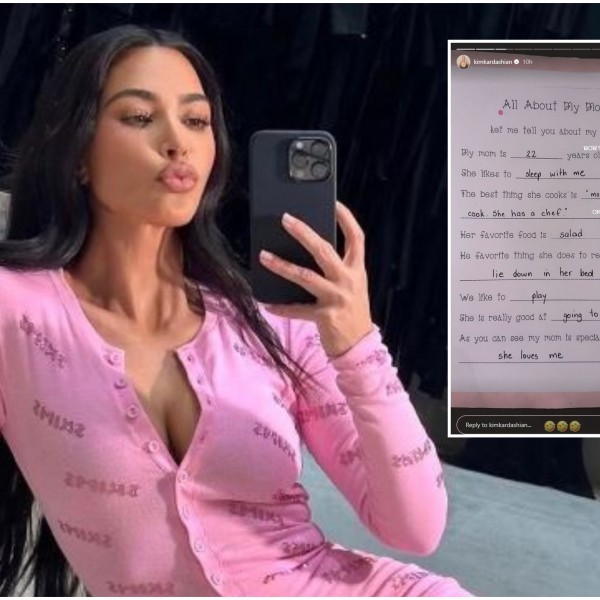 kimkardashian 10h
All About My Mo
Let me tell you about my
My mom is 22 years ol
She likes to sleep with me
The best thing she cooks is "
cook. She has a chef"
Her favorite food is salad
He favorite thing she does to re
lie down in her bed
We like to play
She is really good at going to
As you can see my mom is specia
she loves me
Reply to kimkardashian...
SKIMS
SKIMS
SKIMS
SKIMS
SKIMS
SKIMS